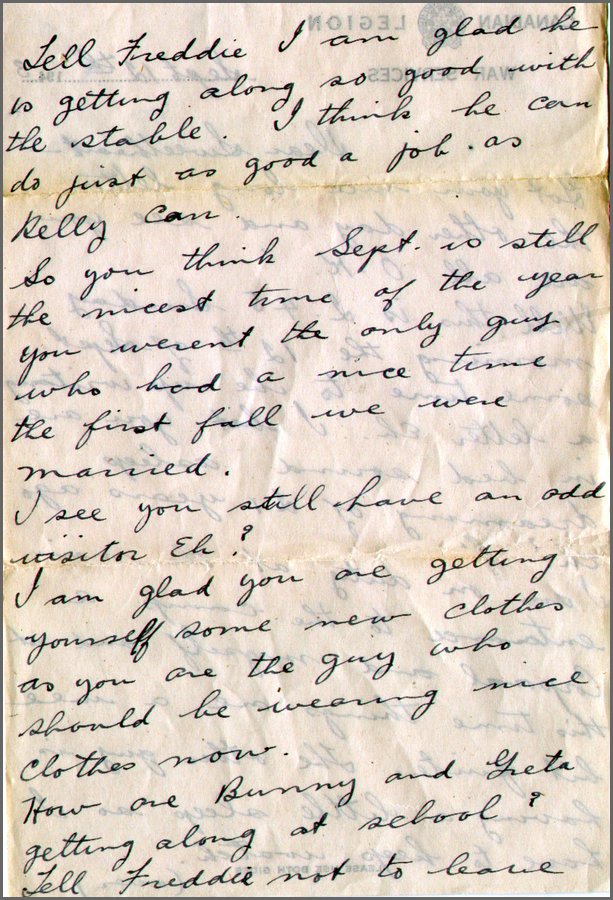 Tell Freddie I am glad he
is getting along so good with
the stable. I think he can
do just as good a job. as
Kelly can.
So you think Sept. is still
the nicest time of the year
you werent the only guy
who had a nice time
the first fall we were
married.
I see you still have an odd
visitor Eh?
I am glad you are getting
yourself some new clothes
as you are the guy who
should be wearing nice
clothes now.
How are Bunny and Greta
getting along at school?
Tell Freddie not to leave